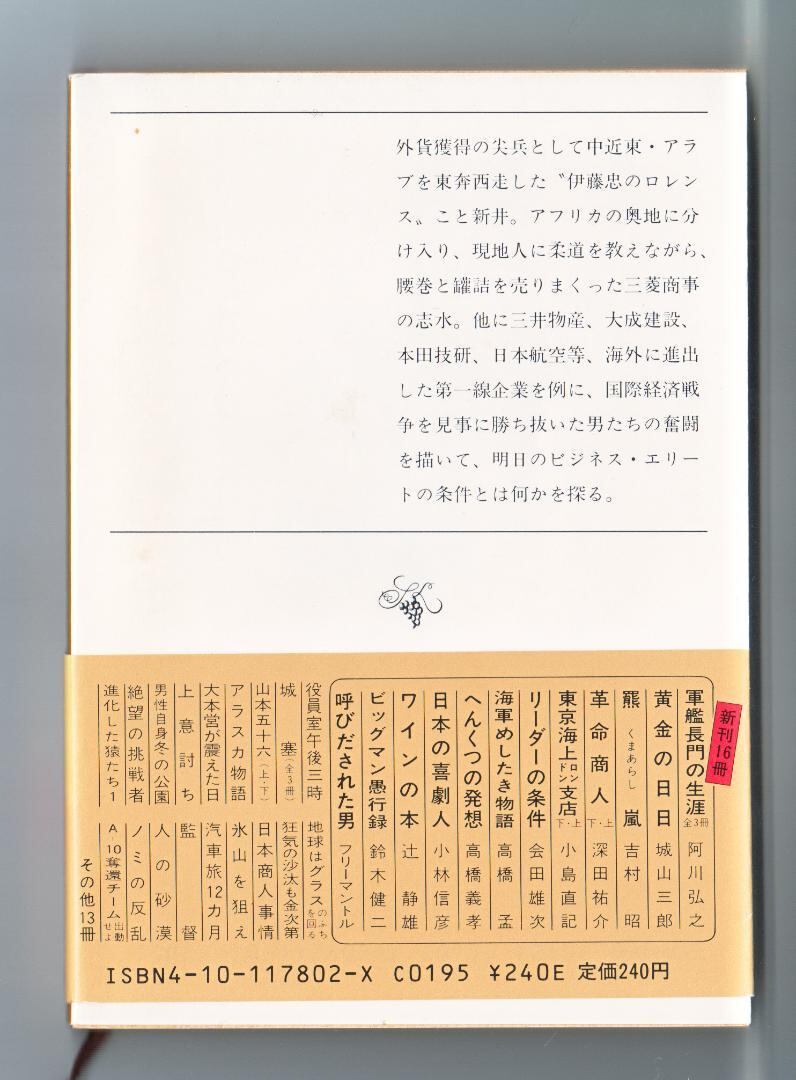 外貨獲得の尖兵として中近東・アラ
ブを東奔西走した〝伊藤忠のロレン
ス〟こと新井。アフリカの奥地に分
け入り、現地人に柔道を教えながら、
腰巻と罐詰を売りまくった三菱商事
の志水。他に三井物産、大成建設、
本田技研、日本航空等、海外に進出
した第一線企業を例に、国際経済戦
争を見事に勝ち抜いた男たちの奮闘
を描いて、明日のビジネス・エリー
トの条件とは何かを探る。
新刊16冊
軍艦長門の生涯 全3冊 阿川弘之
黄金の日日 城山三郎
羆 くまあらし 嵐 吉村 昭
革命商人 下・上 深田祐介
東京海上ロンドン支店 下・上 小島直記
リーダーの条件 会田雄次
海軍めしたき物語 高橋 孟
へんくつの発想 高橋義孝
日本の喜劇人 小林信彦
ワインの本 辻 静雄
ビッグマン愚行録 鈴木健二
呼びだされた男 フリーマントル
役員室午後三時
城 塞(全3冊)
山本五十六(上・下)
アラスカ物語
大本営が震えた日
上意討ち
男性自身冬の公園
絶望の挑戦者
進化した猿たち1
地球はグラスのふちを回る
狂気の沙汰も金次第
日本商人事情
氷山を狙え
汽車旅12カ月
監 督
人の砂漠
ノミの反乱
A・10奪還チーム出動せよ
その他13冊
ISBN4-10-117802-X C0195 ¥240E 定価240円